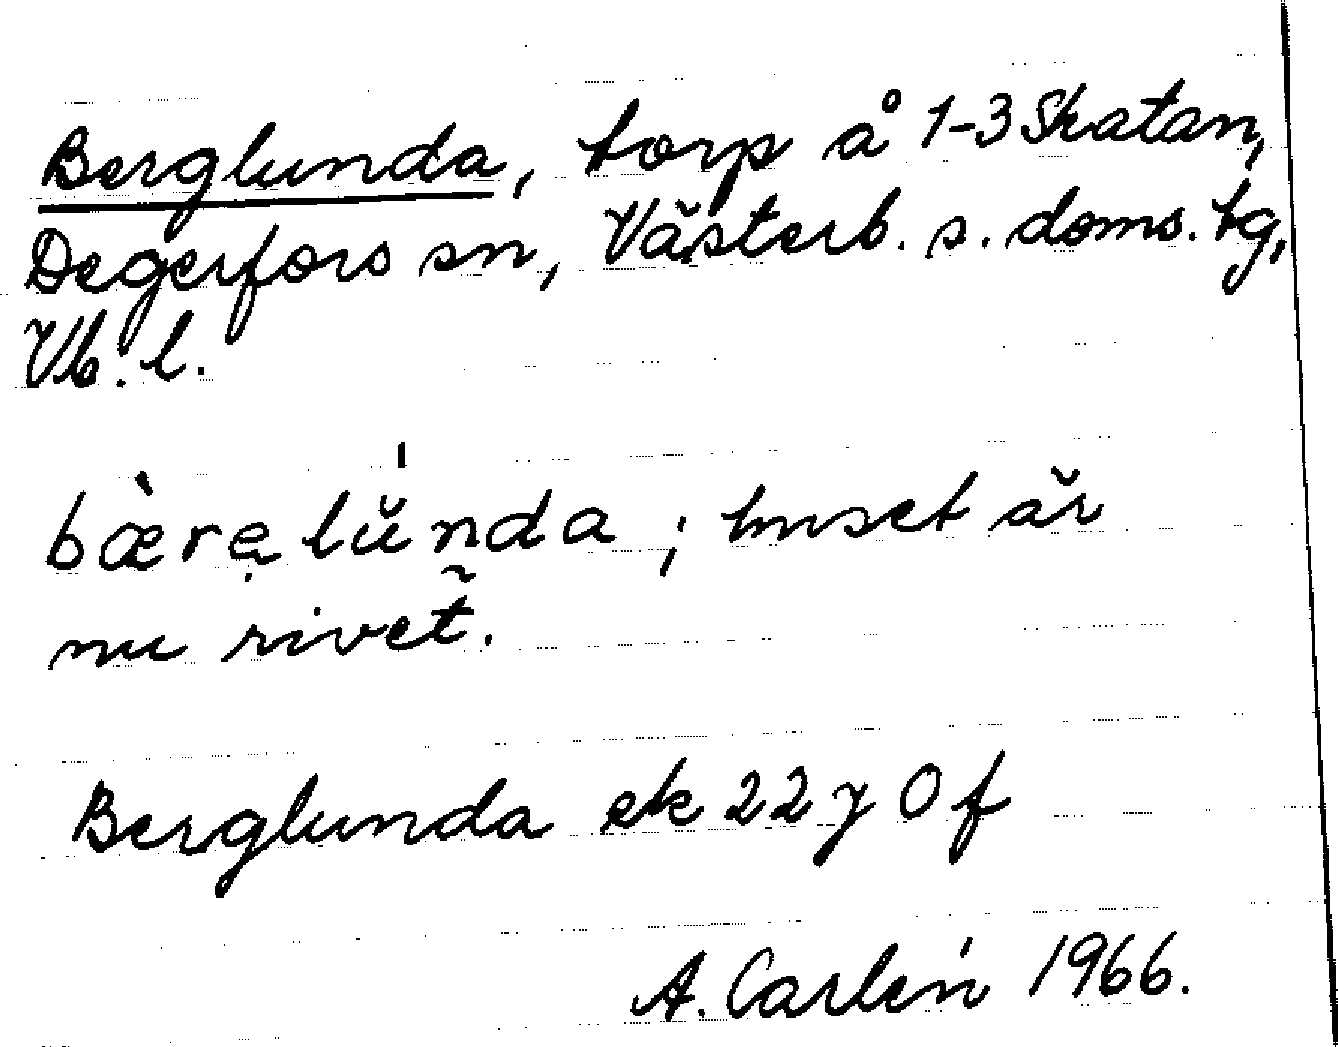 Berglunda, torp å 1-3 Skatan,
Degerfors sn, Västerb. s. doms. tg,
Vb. l.
bær lúnda ; huset är
nu rivet.
Berglunda ek 22 y 0 f
A. Carlén 1966.